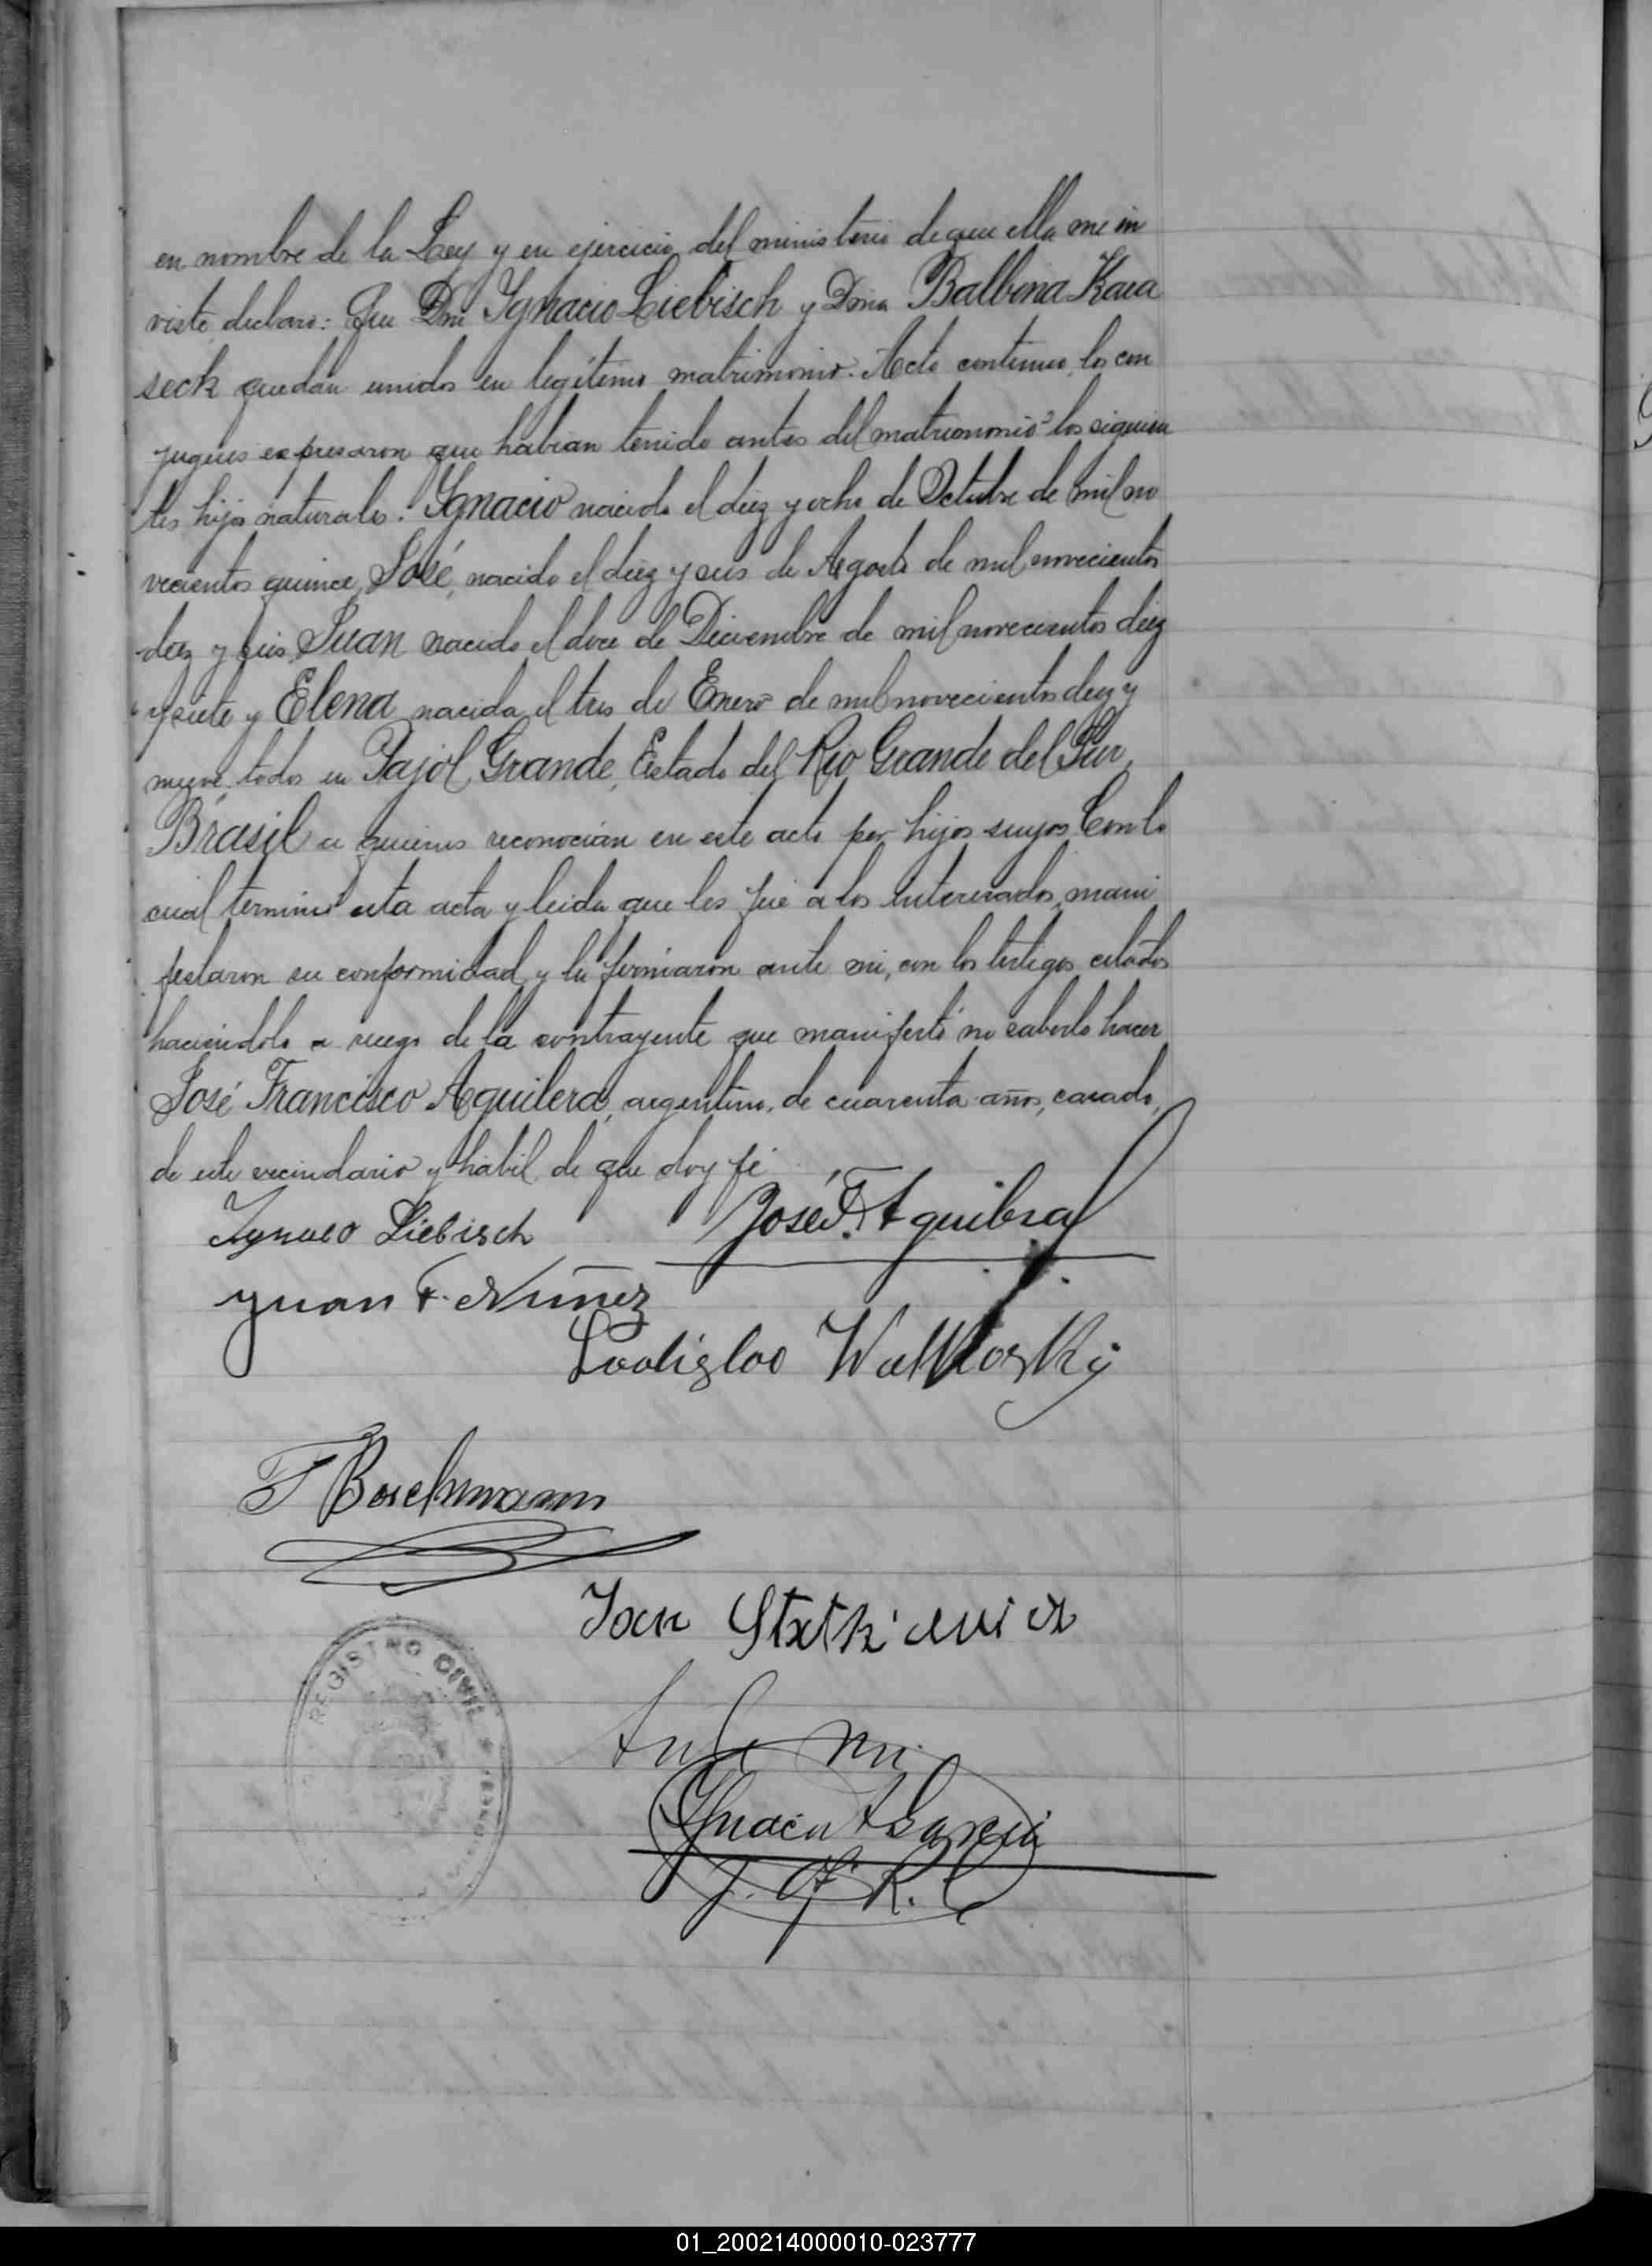 en nombre de la Ley y en ejercicio del ministerio de que ella me in
viste, declaro: Que Don Ignacio Liebisch y Doña Balbina Kara
seck quedan unidos en legítimo matrimonio. Acto continuo los con
yugues expresaron que habian tenido antes del matrimonio los siguien
tes hijos naturales: Ignacio nacido el diez y ocho de Octubre de mil no
vecientos quince, José, nacido el diez y seis de Agosto de mil novecientos
diez y seis, Juan nacido el doce de Diciembre de mil novecientos diez
y siete y Elena nacida el tres de Enero de mil novecientos diez y
nueve, todos en Pajol Grande, Estado del Rio Grande del Sur,
Brasil a quienes reconocian en este acto por hijos suyos Con lo
cual terminó esta acta y leida que les fué a los interesados, mani
festaron su conformidad y la firmaron ante mi, con los testigos citados
haciendolo a ruego de la contrayente que manifestó no saberlo hacer
José Francisco Aguilera, argentino, de cuarenta años, casado,
de este vecindario y hábil de que doy fé
Ignacio Liebisch José F. Aguilera
Juan F. Nuñez
Ladislao
F Boschmann
Jan
REGISTRO CIVIL
Ante mi
Ignacio A Garcia
J. R.
01_200214000010-023777